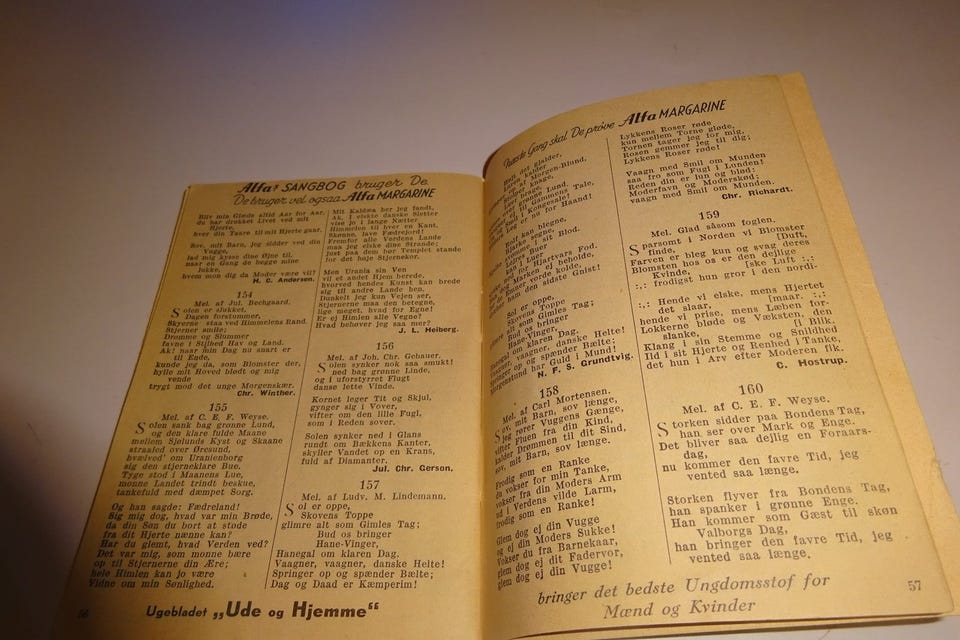 Alfa's SANGBOG bruger De.
De bruger vel ogsaa Alfa MARGARINE
Bliv min Glæde altid Aar for Aar,
du har drukket Livet ved mit
Hjerte,
hver din Taare til mit Hjerte gaar.
Sov, mit Barn, jeg sidder ved din
Vugge,
lad mig kysse dine Øjne til.
naar en Gang de begge mine
lukke,
hvem mon dig da Moder være vil?
H. C. Andersen.
154
Mel. af Jul. Bechgaard.
Solen er slukket,
Dagen forstummer,
Skyerne staa ved Himmelens Rand.
Stjerner smile;
Drømme og Slummer
favne i Stilhed Hav og Land.
Ak! naar min Dag nu snart er
til Ende,
kunde jeg da, som Blomster der,
hylle mit Hoved blødt og mig
vende
trygt mod det unge Morgenskær.
Chr. Winther.
155
Mel. af C. E. F. Weyse.
Solen sank bag grønne Lund,
og den klare fulde Maane
mellem Sjølunds Kyst og Skaane
straaled over Øresund,
hvælved' om Uranienborg
sig den stjerneklare Bue.
Tyge stod i Maanens Lue,
monne Landet trindt beskue,
tankefuld med dæmpet Sorg.
Og han sagde: Fædreland!
Sig mig dog, hvad var min Brøde,
da din Søn du bort at støde
fra dit Hjerte nænne kan?
Har du glemt, hvad Verden ved?
Det var mig, som monne bære
op til Stjernerne din Ære;
hele Himlen kan jo være
Vidne om min Sønlighed.
Mit Kaldæa her jeg fandt,
Ak, I elskte danske Sletter
vise jo i lange Nætter
Himmelen til hver en Kant.
Skønne, lave Fædrejord!
Fremfor alle Verdens Lande
maa jeg elske dine Strande;
just paa dem hør Templet stande
for det høje Stjernekor.
Men Urania sin Ven
vil et andet Hjem berede,
hvorved hendes Kunst kan brede
sig til andre Lande hen.
Dunkelt jeg kun Vejen ser,
Stjernerne maa den betegne,
lige meget, hvad for Egne!
Er ej Himlen alle Vegne?
Hvad behøver jeg saa mer?
J. L. Heiberg.
156
Mel. af Joh. Chr. Gebauer.
Solen synker nok saa smukt!
ned bag grønne Linde,
og i uforstyrret Flugt
danse lette Vinde.
Kornet leger Tit og Skjul,
gynger sig i Vover,
vifter om den lille Fugl,
som i Reden sover.
Solen synker ned i Glans
rundt om Bækkens Kanter,
skyller Vandet op en Krans,
fuld af Diamanter.
Jul. Chr. Gerson.
157
Mel. af Ludv. M. Lindemann.
Sol er oppe,
Skovens Toppe
glimre alt som Gimles Tag;
Bud os bringer
Hane-Vinger,
Hanegal om klaren Dag.
Vaagner, vaagner, danske Helte!
Springer op og spænder Bælte;
Dag og Daad er Kæmperim!
56
Ugebladet „Ude og Hjemme“
Næste Gang skal De prøve Alfa MARGARINE
Højt det gjalder,
Lund.
Tale,
Kongesale!
er nu for Haand!
blegne,
segne,
i sit Blod.
Luer
for Hjartvars Fod.
ej beholde,
kolde,
ham den sidste Gnist!
Sol er oppe,
Skovens Toppe
alt som Gimles Tag;
Bud os bringer
Hane-Vinger,
om klaren Dag.
vaagner, danske Helte!
op og spænder Bælte;
Morgenstund har Guld i Mund!
N. F. S. Grundtvig.
158
Mel. af Carl Mortensen.
Sov, mit Barn, sov længe,
jeg rører Vuggens Gænge,
vifter Fluen fra din Kind,
kalder Drømmen til dit Sind,
sov, mit Barn, sov længe.
Frodig som en Ranke
du vokser for min Tanke,
vokser fra din Moders Arm
ud i Verdens vilde Larm,
frodig som en Ranke!
Glem dog ej din Vugge
og ej din Moders Sukke!
Vokser du fra Barnekaar,
glem dog ej dit Fadervor,
glem dog ej din Vugge!
Lykkens Roser røde
kun mellem Torne gløde,
Tornen tager jeg for mig,
Rosen gemmer jeg til dig;
Lykkens Roser røde!
Vaagn med Smil om Munden
saa fro som Fugl i Lunden!
Reden din er lun og blød:
Moderfavn og Moderskød;
vaagn med Smil om Munden.
Chr. Richardt.
159
Mel. Glad såsom foglen.
Sparsomt i Norden vi Blomster
finde, [Duft,
Farven er bleg kun og svag deres
Blomsten hos os er den dejlige
Kvinde, [ske Luft :,:
:,: frodigst hun gror i den nordi-
:,: Hende vi elske, mens Hjertet
det slaar, [maar. :,:
hende vi prise, mens Læben for-
Lokkerne bløde og Væksten, den
smalle, [i Blik.
Klang i sin Stemme og Snildhed
Ild i sit Hjerte og Renhed i Tanke,
det hun i Arv efter Moderen fik.
C. Hostrup.
160
Mel. af C. E. F. Weyse.
Storken sidder paa Bondens Tag,
han ser over Mark og Enge.
Det bliver saa dejlig en Foraars-
dag,
nu kommer den favre Tid, jeg
vented saa længe.
Storken flyver fra Bondens Tag,
han spanker i grønne Enge.
Han kommer som Gæst til skøn
Valborgs Dag,
han bringer den favre Tid, jeg
vented saa længe.
bringer det bedste Ungdomsstof for
Mænd og Kvinder
57